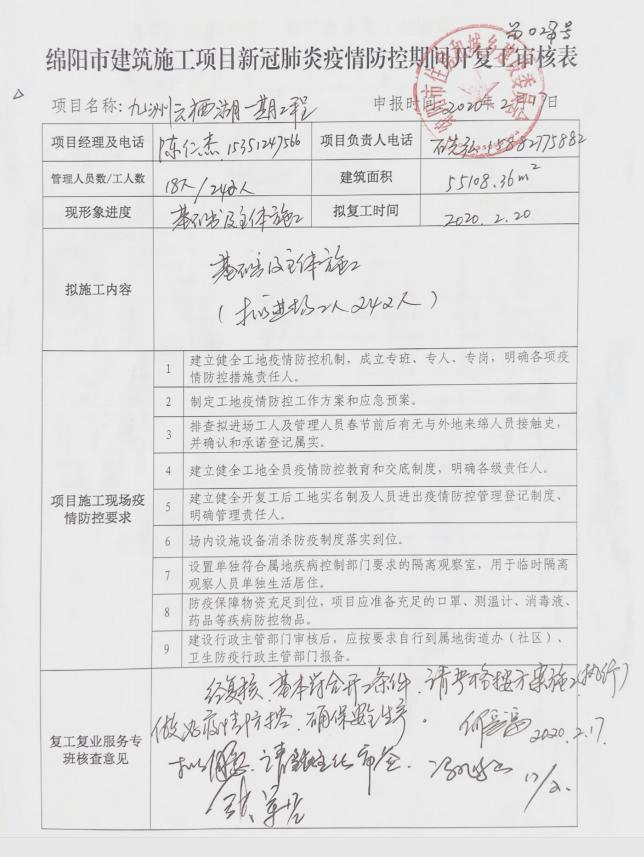 第028号
绵阳市建筑施工项目新冠肺炎疫情防控期间开复工审核表
项目名称:九洲云栖湖一期工程 申报时间:2020年2月17日
项目经理及电话 陈仁杰 15351247566 项目负责人电话 15882775882
管理人员数/工人数 18人/242人 建筑面积 55108.36m²
现形象进度 基础及主体施工 拟复工时间 2020.2.20
拟施工内容
基础及主体施工
(拟进场工人242人)
项目施工现场疫情防控要求
1 建立健全工地疫情防控机制,成立专班、专人、专岗,明确各项疫
情防控措施责任人。
2 制定工地疫情防控工作方案和应急预案。
3 排查拟进场工人及管理人员春节前后有无与外地来绵人员接触史,
并确认和承诺登记属实。
4 建立健全工地全员疫情防控教育和交底制度,明确各级责任人。
5 建立健全开复工后工地实名制及人员进出疫情防控管理登记制度、
明确管理责任人。
6 场内设施设备消杀防疫制度落实到位。
7 设置单独符合属地疾病控制部门要求的隔离观察室,用于临时隔离
观察人员单独生活居住。
8 防疫保障物资充足到位,项目应准备充足的口罩、测温计、消毒液、
药品等疾病防控物品。
9 建设行政主管部门审核后,应按要求自行到属地街道办(社区)、
卫生防疫行政主管部门报备。
复工复业服务专班核查意见
经复核,基本符合开工条件,请严格按方案施工(执行)
做好疫情防控,确保安全生产。 2020.2.17.
拟同意,请 审签。 17/2.